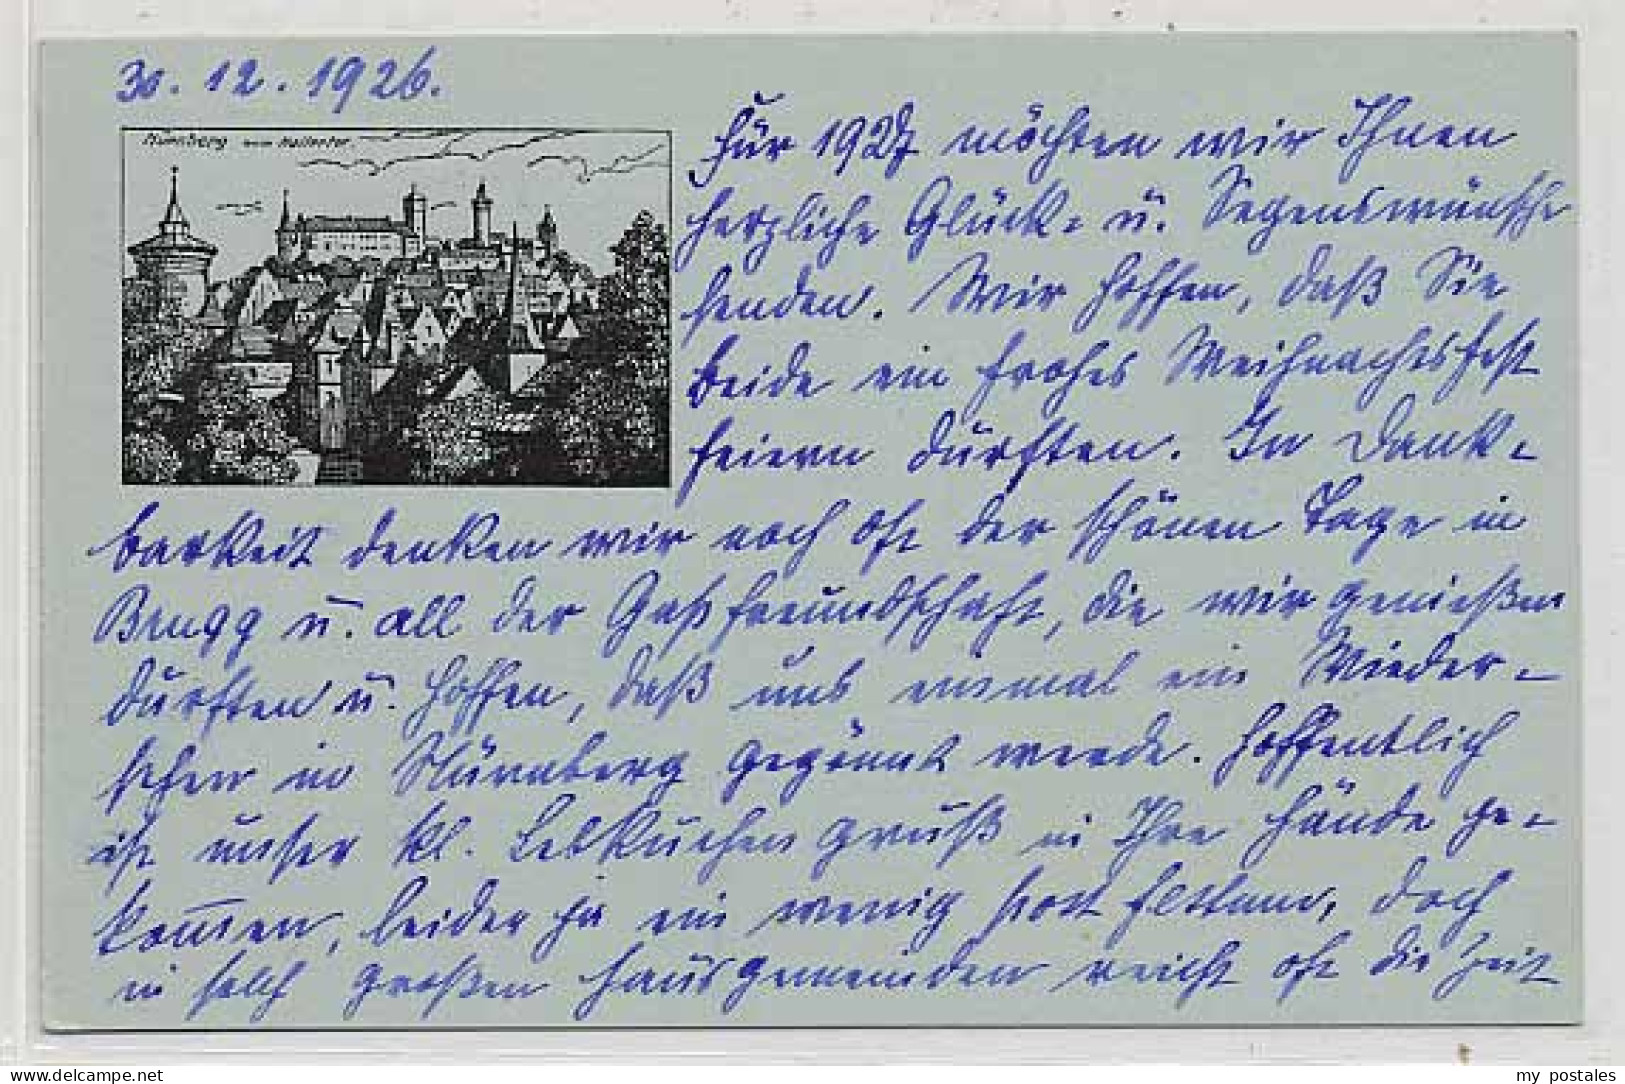 30. 12. 1926.
Nürnberg vom Hallertor.
Für 1927 möchten wir Ihnen
herzliche Glück- u. Segenswünsche
senden. Wir hoffen, daß Sie
beide ein frohes Weihnachtsfest
feiern durften. In Dank-
barkeit denken wir noch oft der schönen Tage in
Brugg u. all der Gastfreundschaft, die wir genießen
durften u. hoffen, daß uns einmal ein Wieder-
sehen in Nürnberg gegönnt werde. Hoffentlich
ist unser kl. Lebkuchengruß in Ihre Hände ge-
kommen, leider ja ein wenig post festum, doch
in solch großen Hausgemeinden reicht oft die Zeit
my postales